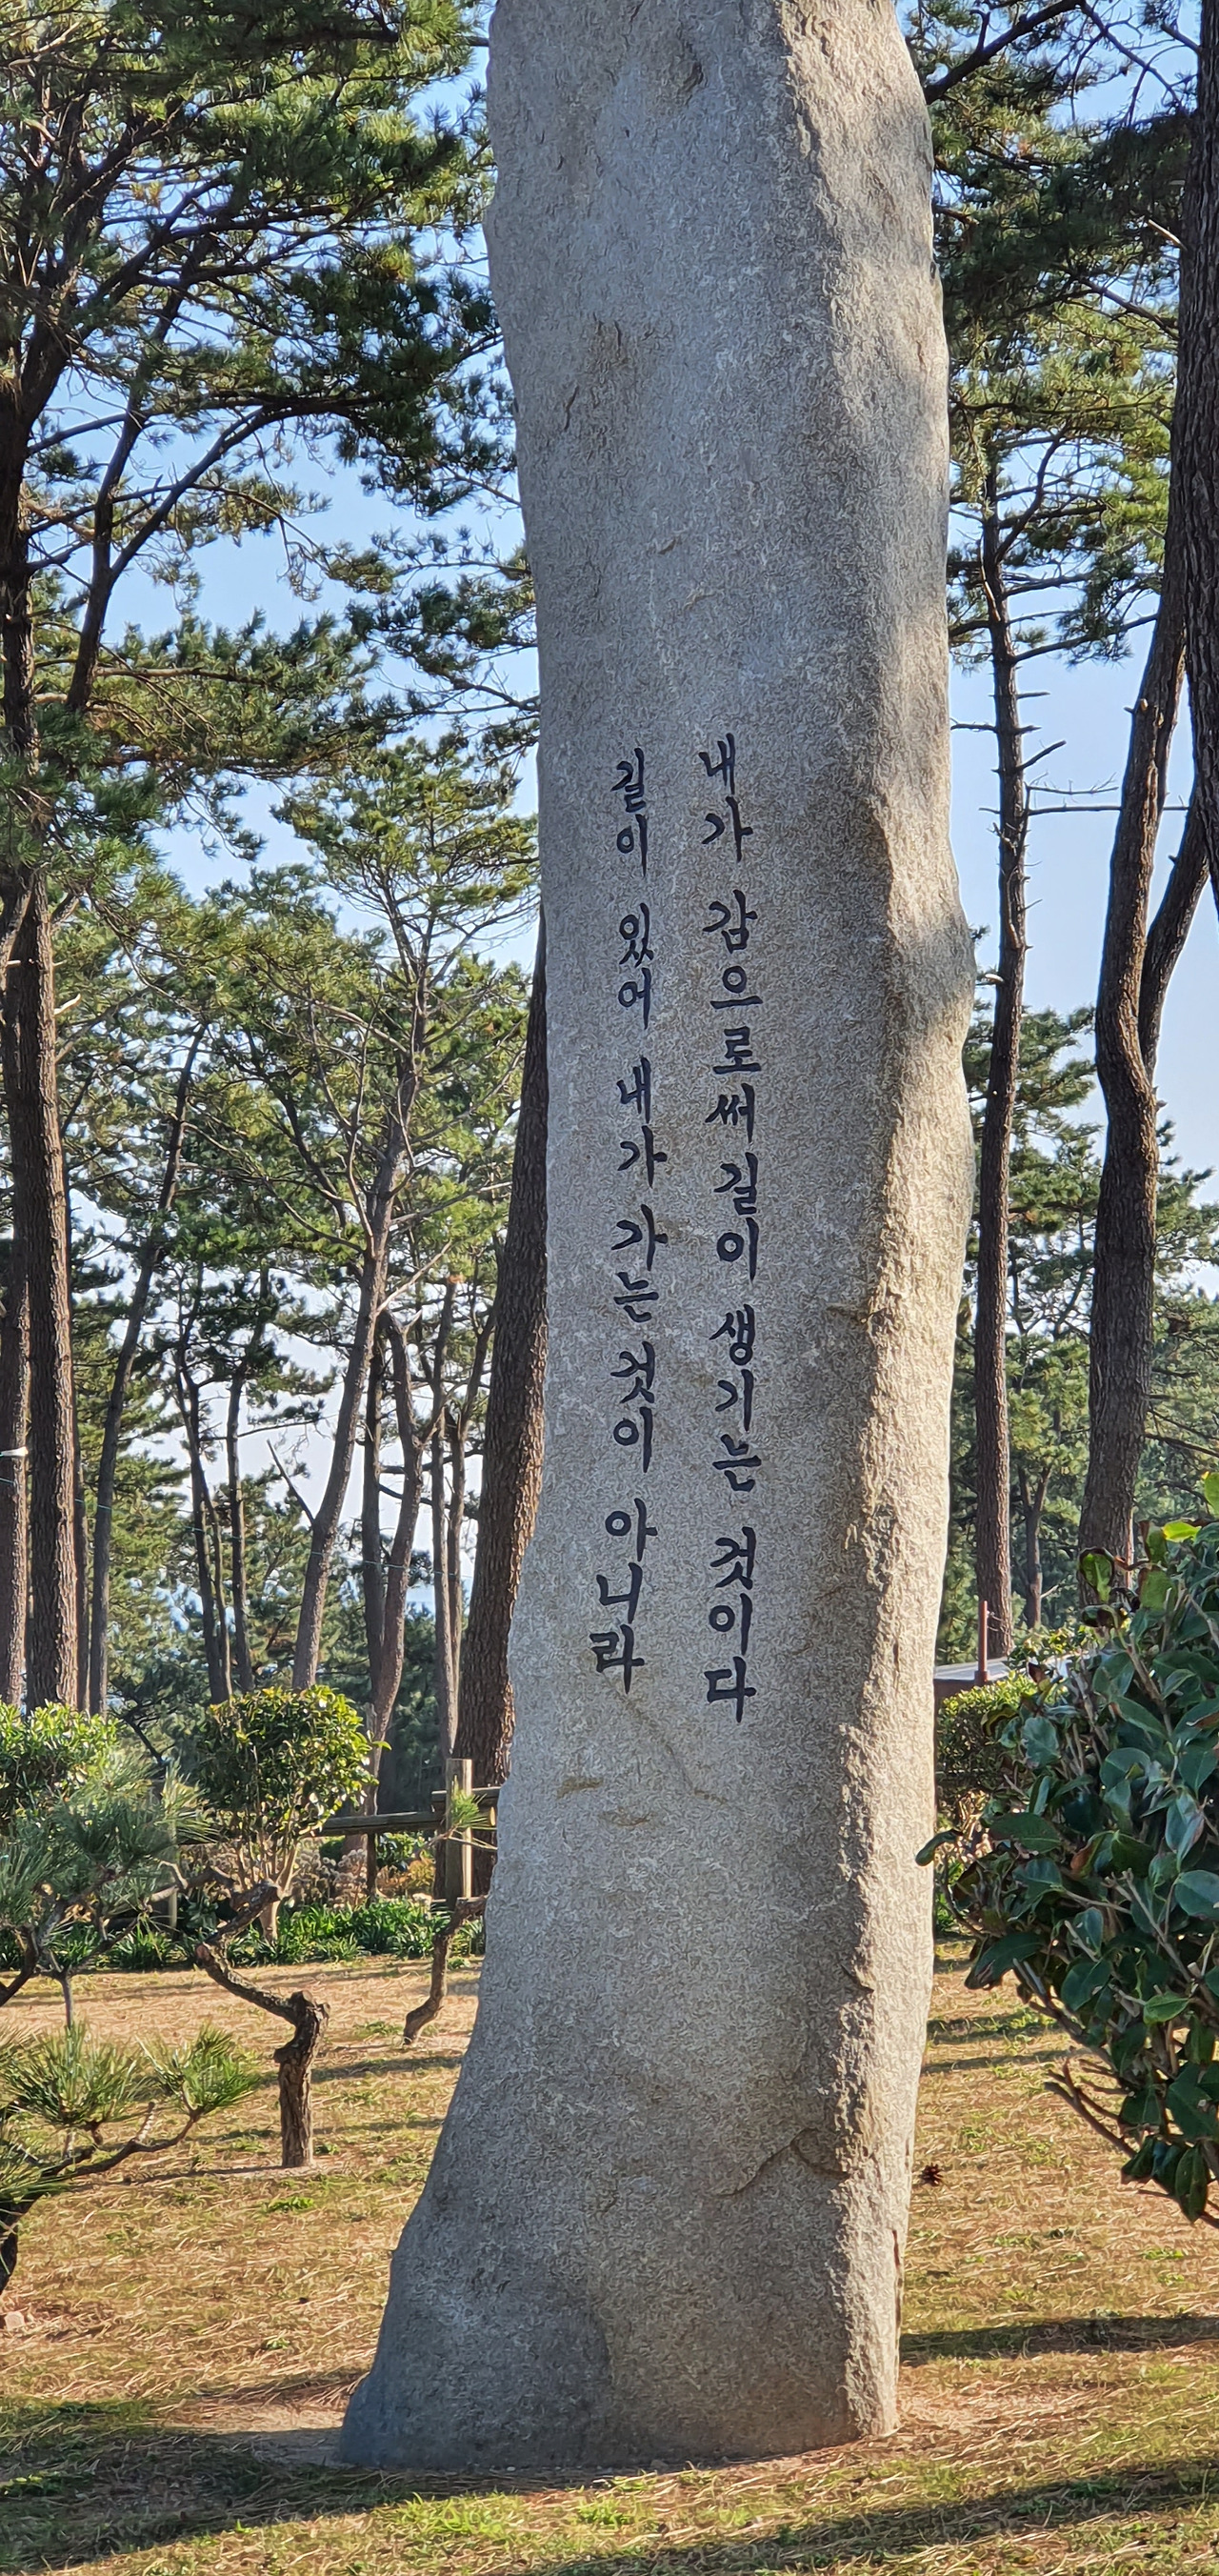 길이 있어 내가 가는 것이 아니라
내가 감으로써 길이 생기는 것이다